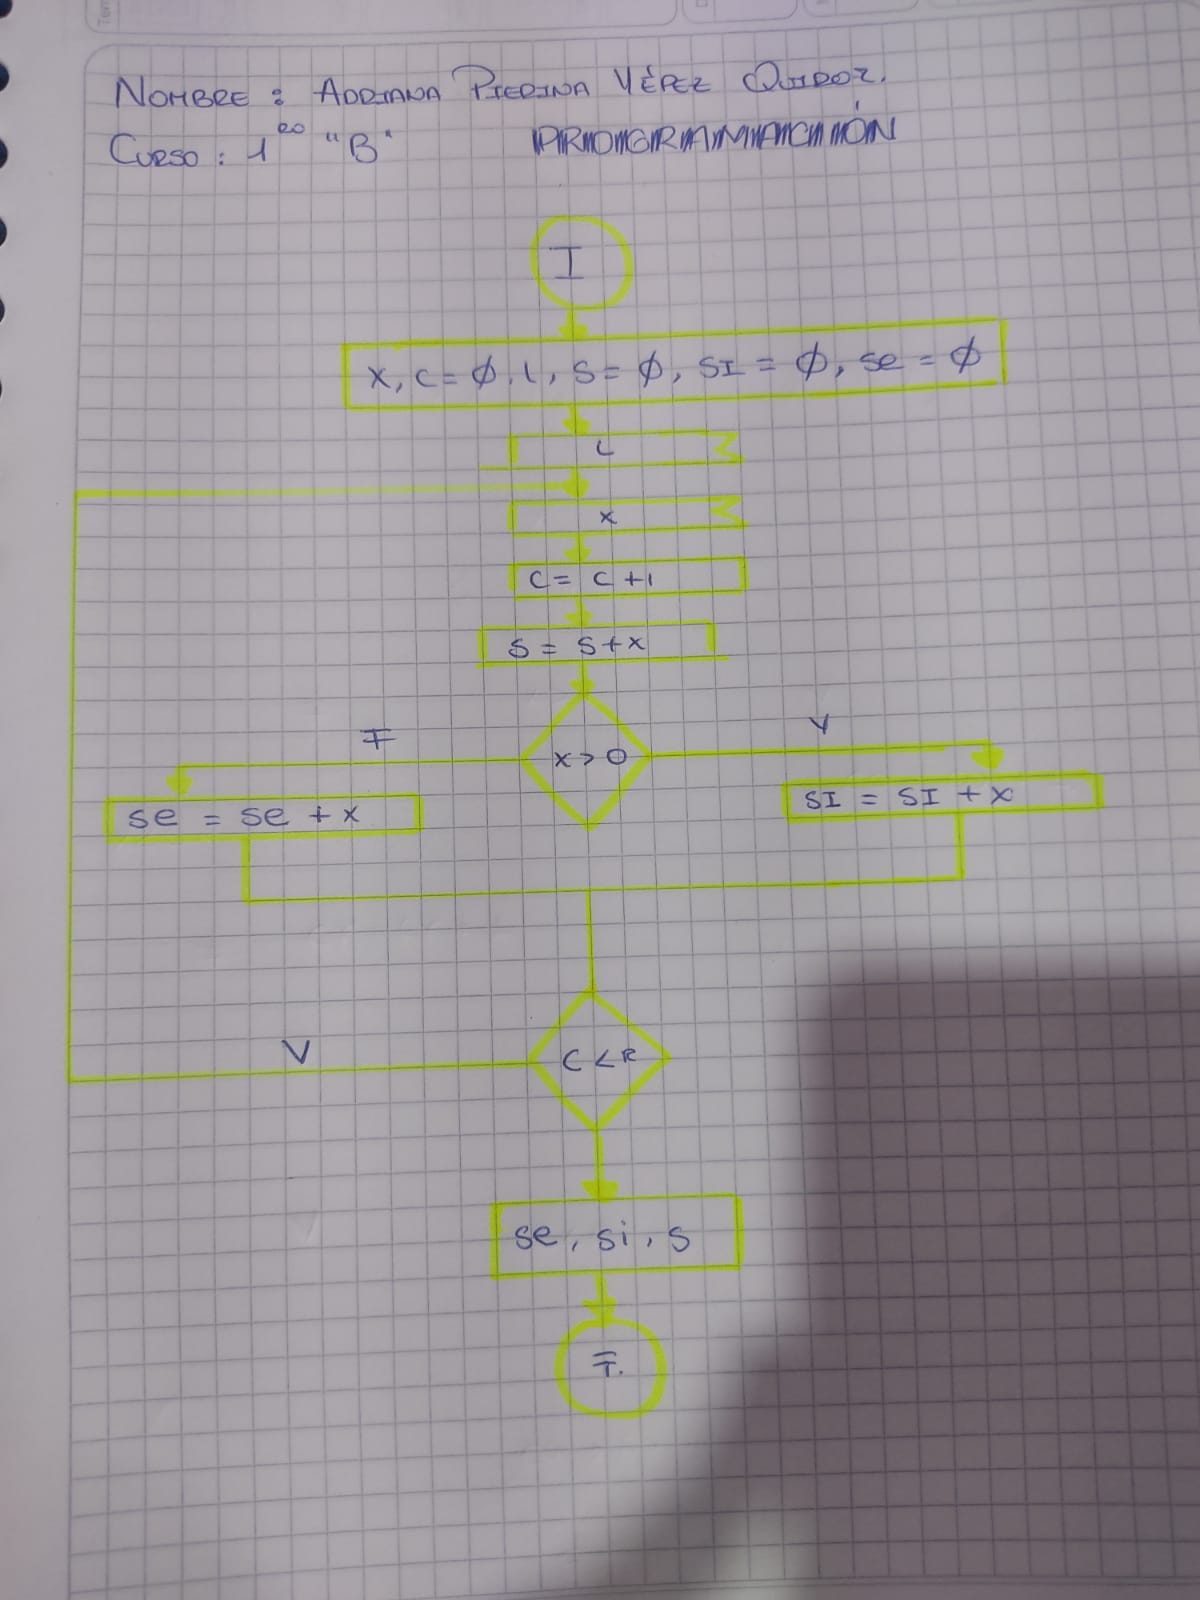 NOMBRE : ADRIANA PIERINA YÉPEZ QUIROZ.
CURSO : 1ro "B" PROGRAMACIÓN
I
X, C = Ø, L, S = Ø, SI = Ø, Se = Ø
L
X
C = C + 1
S = S + X
F
V
X > 0
Se = Se + X
SI = SI + X
V
C < R
Se, Si, S
F.